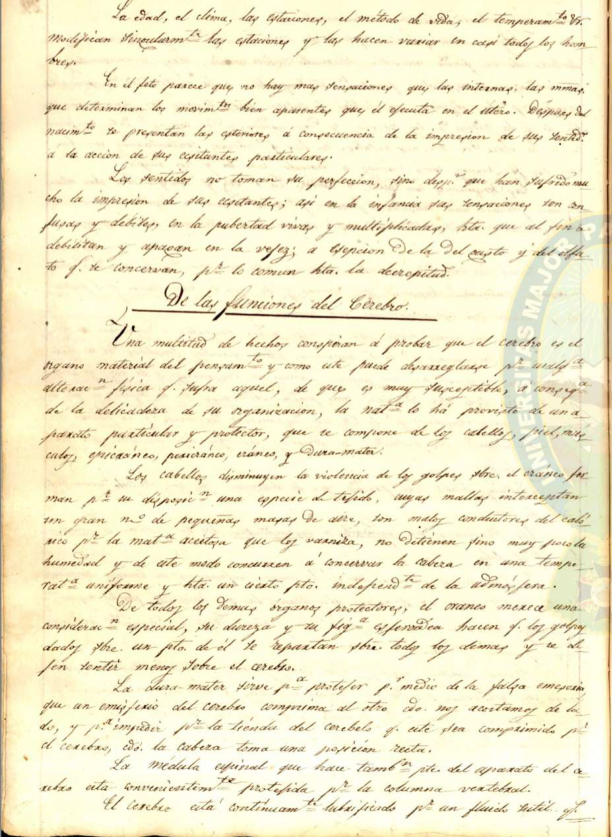 La edad, el clima, las estaciones, el método de vida, el temperam.to &.
modifican singularm.te las estaciones y las hacen variar en casi todos los hom
bres.
En el feto parece que no hay mas sensaciones que las internas: las mmas.
que determinan los movim.tos bien aparentes que el ejecuta en el útero. Despues del
nacim.to se presentan las esteriores á consecuencia de la impresion de sus sentid.s
a la accion de sus esitantes particulares.
Los sentidos no toman su perfeccion, sino desp.s que han sufrido mu
cho la impresion de sus esitantes; asi en la infancia sus sensaciones son con
fusas y debiles, en la pubertad vivas y multiplicadas, hta. que al fin se
debilitan y apagan en la vejez; a esepcion de la del gusto y del olfa
to q. se concervan, p.r lo comun hta. la decrepitud.
De las funciones del Cerebro.
Una multitud de hechos conspiran á probar que el cerebro es el
organo material del pensam.to y como este puede desarreglarse p.r cualq.a
alterac.n fisica q. sufra aquel, de que es muy suseptible, á conseq.a
de la delicadeza de su organizacion, la nat.a lo há provisto de un a
parato particular y protector, que se compone de los cabellos, piel, mus
culos, epicraneo, pericraneo, cráneo, y dura-mater.
Los cabellos disminuyen la violencia de los golpes sbre. el craneo for
man p.r su disposic.n una especie de tejido, cuyas mallas interceptan
un gran n.o de pequeñas masas de aire, son malos conductores del caló
rico p.r la mat.a aceitosa que los varniza, no detienen sino muy poco la
humedad y de este modo concurren á concervar la cabeza en una tempe
rat.a uniforme y hta. un cierto pto. independ.te de la admósfera.
De todos los demas organos protectores, el craneo merece una
considerac.n especial, su dureza y su fig.a esferoidea hacen q. los golpes
dados sbre. un pto. de él se repartan sbre. todos los demas y se de
jen sentir menos sobre el cerebro.
La dura mater sirve p.a protejer p.r medio de la falsa
que un emisferio del cerebro comprima al otro cdo. nos acostamos de la
do, y p.a impedir p.r la tienda del cerebelo q. este sea comprimido p.r
el cerebro, cdo. la cabeza toma una posicion recta.
La médula espinal que hace tamb.n pte. del aparato del ce
rebro está convenientem.te protejida p.r la columna vertebral.
El cerebro está continuam.te lubrifiendo p.r un fluido sutil